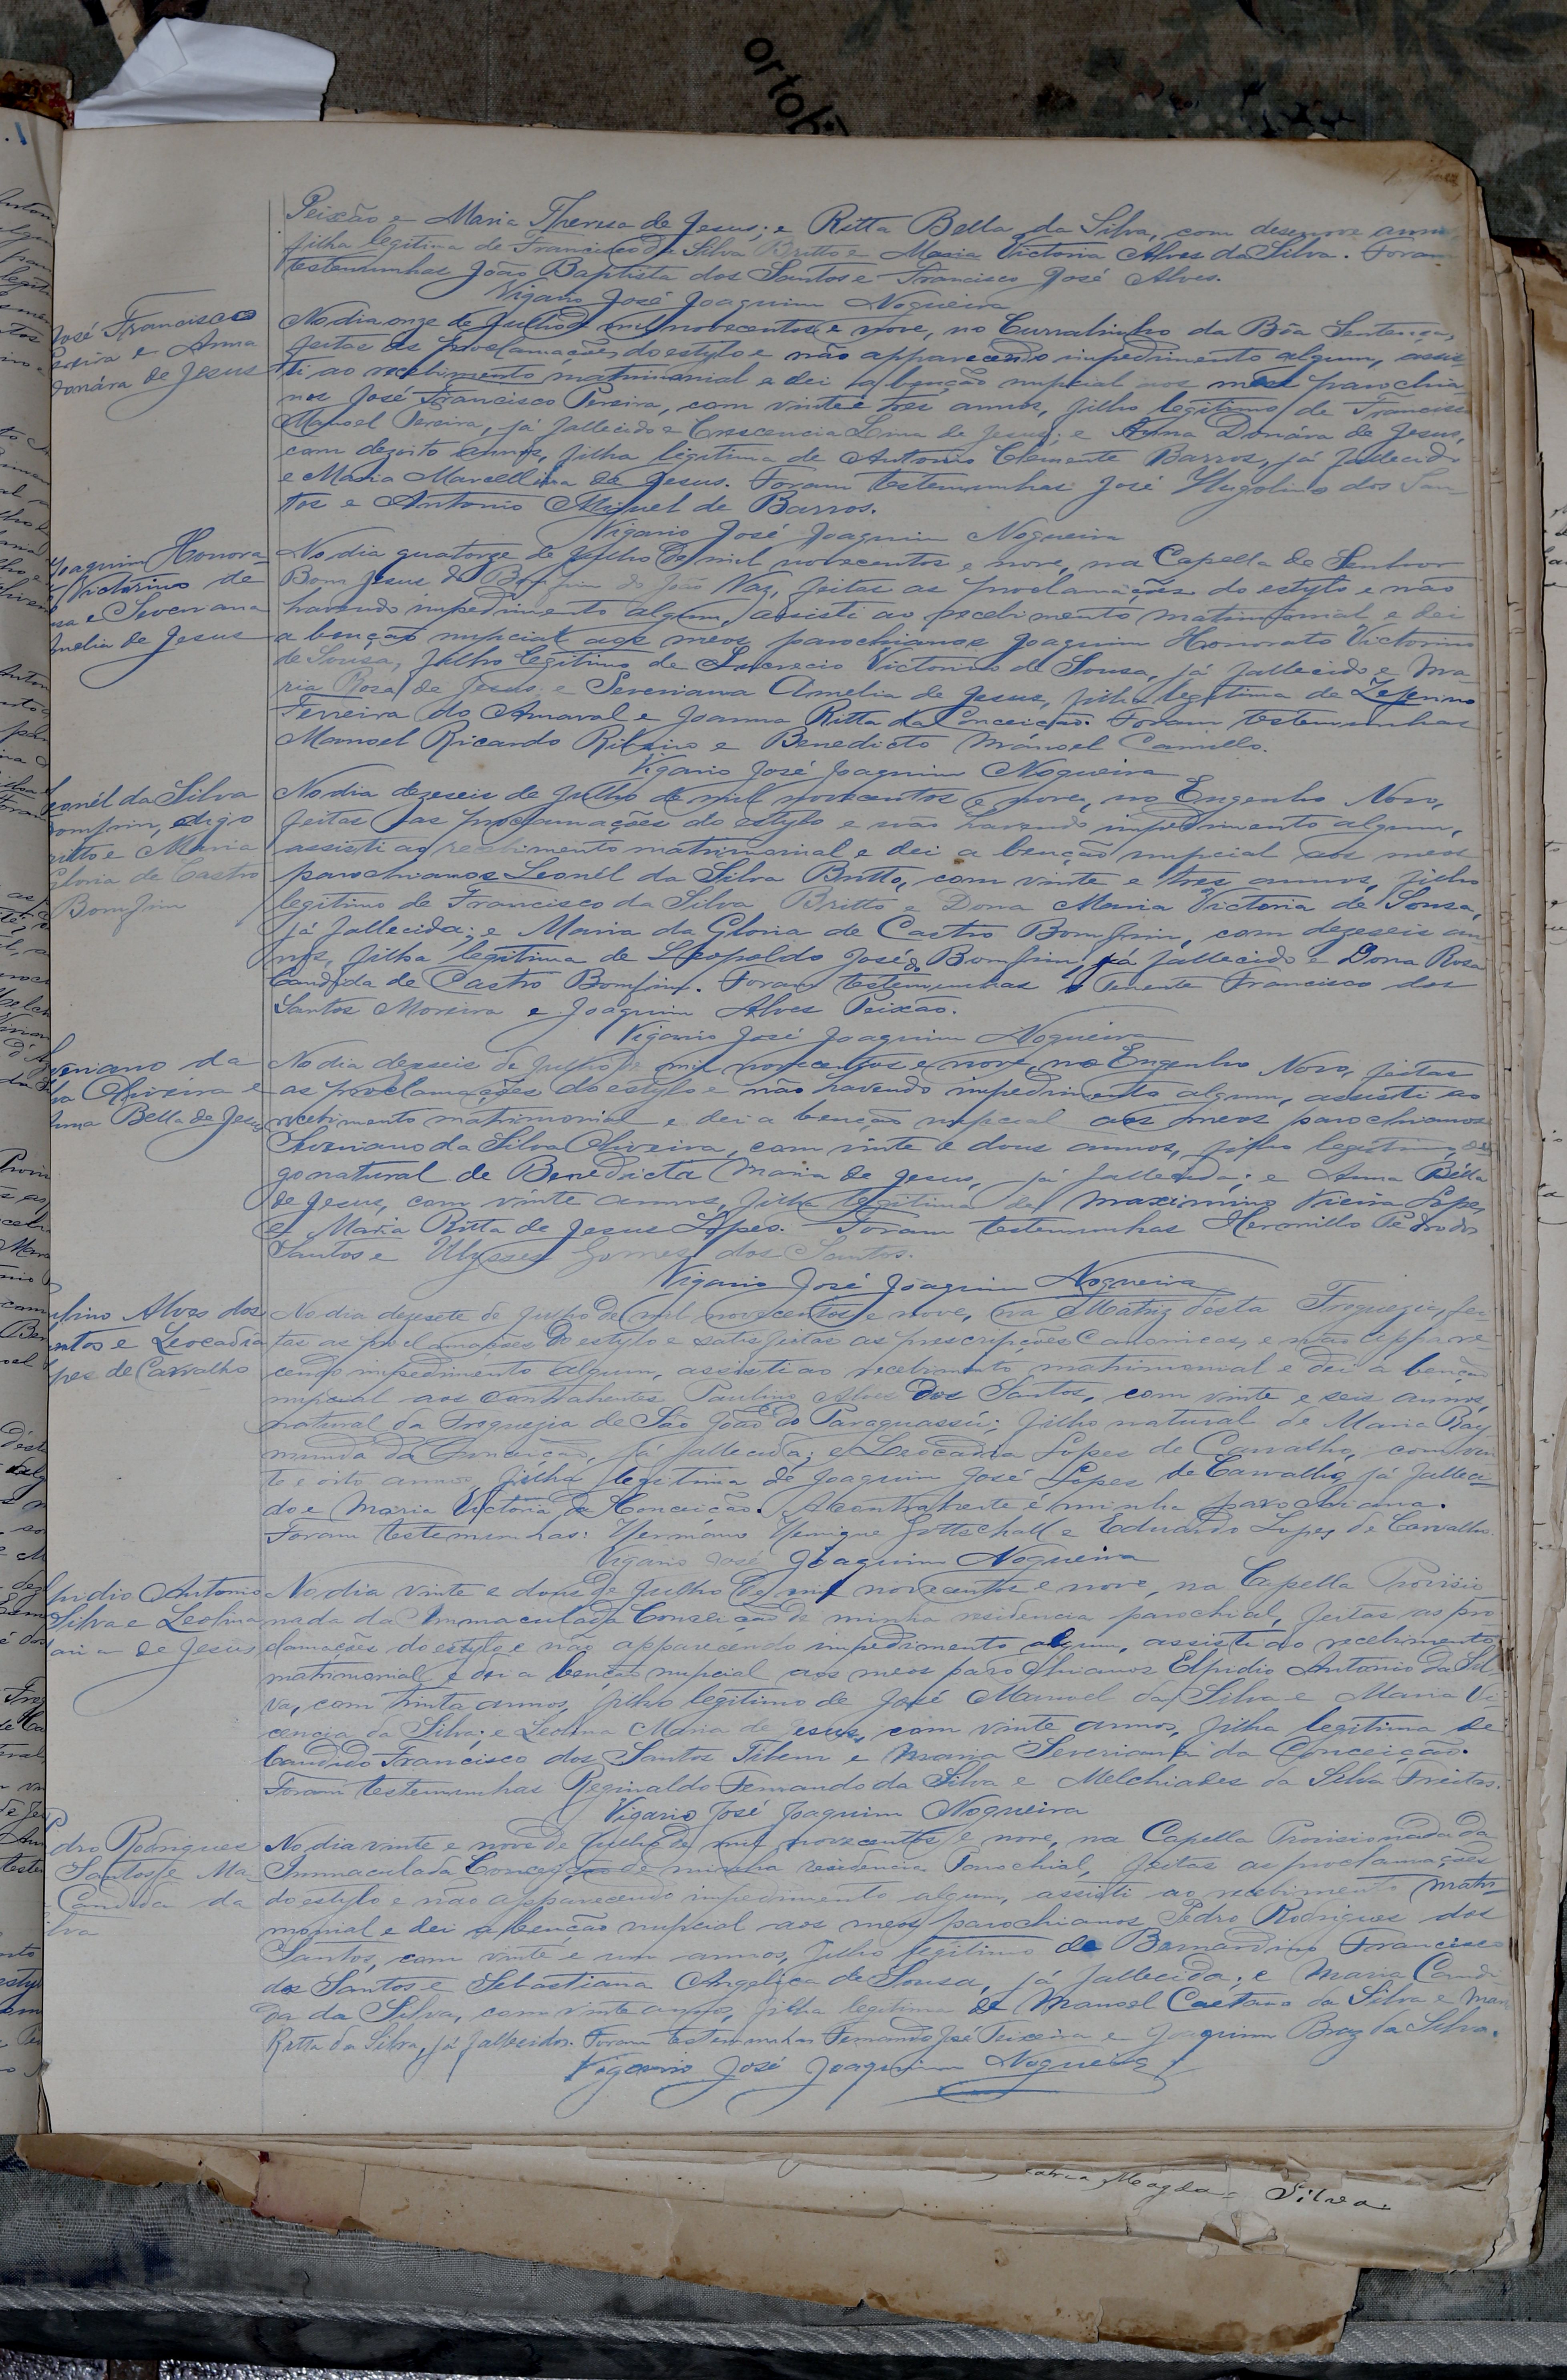 Peixão e Maria Thereza de Jesus; e Ritta Bella da Silva, com desenove annos
filha legitima de Francisco da Silva Britto e Maria Victoria Alves da Silva. Foram
testemunhas João Baptista dos Santos e Francisco José Alves.
Vigario José Joaquim Nogueira
José Francisco
Pereira e Anna
Donára de Jesus
No dia onze de Julho de mil novecentos e nove, no Curralinho da Bôa Sentença,
feitas as proclamações do estylo e não apparecendo impedimento algum, assis-
ti ao recebimento matrimonial e dei a benção nupcial aos meos parochia-
nos José Francisco Pereira, com vinte e tres annos, filho legitimo de Francisco
Manoel Pereira, já fallecido e Crescencia Lima de Jesus; e Anna Donára de Jesus,
com dezoito annos, filha legitima de Antonio Clemente Barros, já fallecido
e Maria Marcellina de Jesus. Foram testemunhas José Hugolino dos San-
tos e Antonio Miguel de Barros.
Vigario José Joaquim Nogueira
Joaquim Honora-
Victorino de
e Severiana
Amelia de Jesus
No dia quatorze de Julho de mil novecentos e nove, na Capella de Senhor
Bom Jesus do Bomfim do João Vaz, feitas as proclamações do estylo e não
havendo impedimento algum, assisti ao recebimento matrimonial e dei
a benção nupcial aos meos parochianos Joaquim Honorato Victorino
de Sousa, filho legitimo de Lucrecio Victorino de Sousa, já fallecido e Ma-
ria Rosa de Jesus; e Severiana Amelia de Jesus, filha legitima de Zeferino
Ferreira do Amaral e Joanna Ritta da Conceição. Foram testemunhas
Manoel Ricardo Ribeiro e Benedicto Manoel Camillo.
Vigario José Joaquim Nogueira
Leonél da Silva
Bomfim, digo
Britto e Maria
Gloria de Castro
Bomfim
No dia dezeseis de Julho de mil novecentos e nove, no Engenho Novo,
feitas as proclamações do estylo e não havendo impedimento algum,
assisti ao recebimento matrimonial e dei a benção nupcial aos meos
parochianos Leonél da Silva Britto, com vinte e tres annos, filho
legitimo de Francisco da Silva Britto e Dona Maria Victoria de Sousa,
já fallecida; e Maria da Gloria de Castro Bomfim, com dezeseis an-
nos, filha legitima de Leopoldo José do Bomfim, já fallecido e Dona Rosa
Candida de Castro Bomfim. Foram testemunhas o Tenente Francisco dos
Santos Moreira e Joaquim Alves Peixão.
Vigario José Joaquim Nogueira
Severiano da
Silva Oliveira e
Anna Bella de Jesus
No dia dezeseis de Julho de mil novecentos e nove, no Engenho Novo, feitas
as proclamações do estylo e não havendo impedimento algum, assisti ao
recebimento matrimonial e dei a benção nupcial aos meos parochianos
Severiano da Silva Oliveira, com vinte e dous annos, filho legitimo, di-
go natural de Benedicta Maria de Jesus, já fallecida; e Anna Bélla
de Jesus, com vinte annos, filha legitima de Maximino Vieira Lopes
e Maria Ritta de Jesus Lopes. Foram testemunhas Hermillo Pedro dos
Santos e Ulysses Gomes dos Santos.
Vigario José Joaquim Nogueira
Paulino Alves dos
Santos e Leocadia
Lopes de Carvalho
No dia dezesete de Julho de mil novecentos e nove, na Matriz désta Freguezia, fei-
tas as proclamações do estylo e satisfeitas as prescripções Canonicas, e não appare-
cendo impedimento algum, assisti ao recebimento matrimonial e dei a benção
nupcial aos contrahentes Paulino Alves dos Santos, com vinte e seis annos,
natural da Freguezia de São João do Paraguassú; filho natural de Maria Ray-
munda da Conceição, já fallecida; e Leocadia Lopes de Carvalho, com vin-
te e oito annos, filha legitima de Joaquim José Lopes de Carvalho, já falleci-
do e Maria Victoria da Conceição. A contrahente é minha parochiana.
Foram testemunhas: Hermano Henrique Gottschall e Eduardo Lopes de Carvalho.
Vigario José Joaquim Nogueira
Elpidio Antonio
Silva e Leolina
Maria de Jesus
No dia vinte e dous de Julho de mil novecentos e nove, na Capella Provisio-
nada da Immaculada Conceição de minha residencia parochial, feitas as pro-
clamações do estylo e não apparecendo impedimento algum, assisti ao recebimento
matrimonial e dei a benção nupcial aos meos parochianos Elpidio Antonio da Sil-
va, com trinta annos, filho legitimo de José Manoel da Silva e Maria Vi-
cencia da Silva; e Leolina Maria de Jesus, com vinte annos, filha legitima de
Candido Francisco dos Santos e Maria Severiana da Conceição.
Foram testemunhas Reginaldo Fernando da Silva e Melchiades da Silva Freitas.
Vigario José Joaquim Nogueira
Pedro Rodrigues
Santos e Ma-
Candida da
Silva
No dia vinte e nove de Julho de mil novecentos e nove, na Capella Provisionada da
Immaculada Conceição de minha residencia Parochial, feitas as proclamações
do estylo e não apparecendo impedimento algum, assisti ao recebimento matri-
monial e dei a benção nupcial aos meos parochianos Pedro Rodrigues dos
Santos, com vinte e um annos, filho legitimo de Bernardino Francisco
dos Santos e Sebastiana Angelica de Sousa, já fallecida; e Maria Candi-
da da Silva, com vinte annos, filha legitima de Manoel Caetano da Silva e Maria
Ritta da Silva, já fallecidos. Foram testemunhas Fernando José Teixeira e Joaquim Braz da Silva.
Vigario José Joaquim Nogueira
Magda Silva